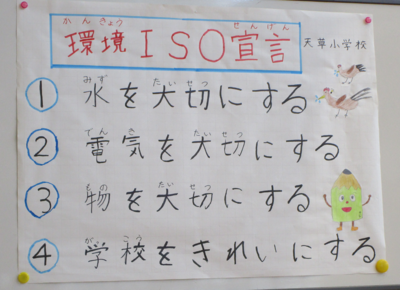 環境ISO宣言
かんきょう せんげん
天草小学校
① 水を大切にする
みず たいせつ
② 電気を大切にする
でんき たいせつ
③ 物を大切にする
もの たいせつ
④ 学校をきれいにする
がっこう